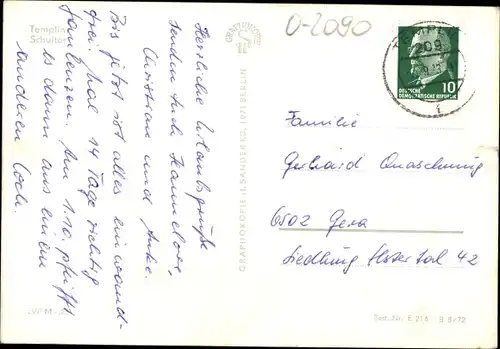 Templin
Schultor
Herzliche Urlaubsgrüße
senden Euch Hannelore,
Christian und Anke.
Bis jetzt ist alles einwand-
frei. Mal 14 Tage richtig
faulenzen. Am 1.10. pfeift
es dann aus einem
anderen Loch.
GRAPHOKOPIE H. SANDER KG, 1071 BERLIN
0-2090
TEMPLIN
209
DEUTSCHE
DEMOKRATISCHE REPUBLIK
10
Familie
Gerhard Quaschning
6502 Gera
Siedlung Elstertal 42
Best.-Nr. E 216 B 8/72